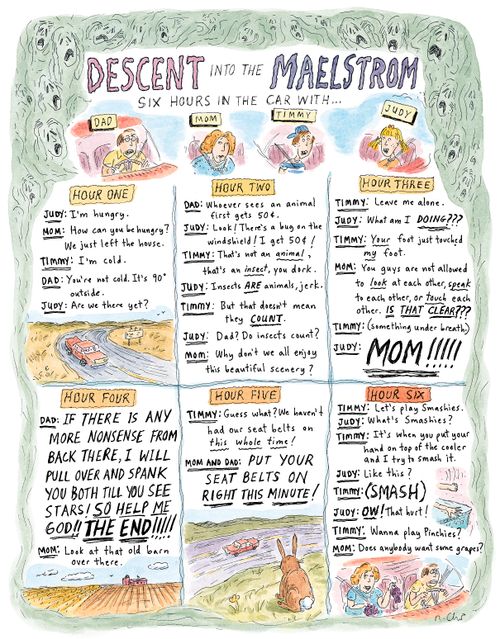 DESCENT INTO THE MAELSTROM
SIX HOURS IN THE CAR WITH...
DAD
MOM
TIMMY
JUDY
HOUR ONE
JUDY: I'm hungry.
MOM: How can you be hungry?
We just left the house.
TIMMY: I'm cold.
DAD: You're not cold. It's 90°
outside.
JUDY: Are we there yet?
HOUR TWO
DAD: Whoever sees an animal
first gets 50¢.
JUDY: Look! There's a bug on the
windshield! I get 50¢!
TIMMY: That's not an animal,
that's an insect, you dork.
JUDY: Insects ARE animals, jerk.
TIMMY: But that doesn't mean
they COUNT.
JUDY: Dad? Do insects count?
MOM: Why don't we all enjoy
this beautiful scenery?
HOUR THREE
TIMMY: Leave me alone.
JUDY: What am I DOING???
TIMMY: Your foot just touched
my foot.
MOM: You guys are not allowed
to look at each other, speak
to each other, or touch each
other. IS THAT CLEAR???
TIMMY: (Something under breath)
JUDY: MOM!!!!!
HOUR FOUR
DAD: IF THERE IS ANY
MORE NONSENSE FROM
BACK THERE, I WILL
PULL OVER AND SPANK
YOU BOTH TILL YOU SEE
STARS! SO HELP ME
GOD!! THE END!!!!!
MOM: Look at that old barn
over there.
HOUR FIVE
TIMMY: Guess what? We haven't
had our seat belts on
this whole time!
MOM AND DAD: PUT YOUR
SEAT BELTS ON
RIGHT THIS MINUTE!
HOUR SIX
TIMMY: Let's play Smashies.
JUDY: What's Smashies?
TIMMY: It's when you put your
hand on top of the cooler
and I try to smash it.
JUDY: Like this?
TIMMY: (SMASH)
JUDY: OW! That hurt!
TIMMY: Wanna play Pinchies?
MOM: Does anybody want some grapes?